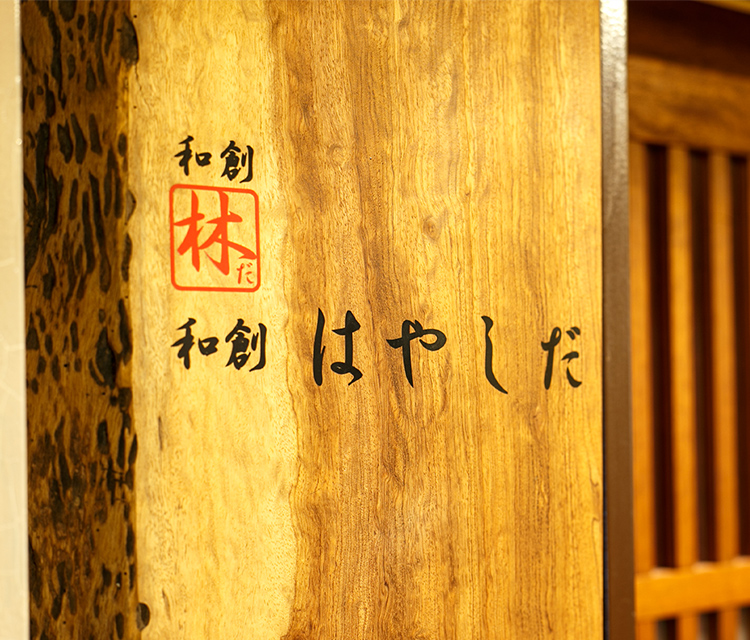 和創
林だ
和創 はやしだ